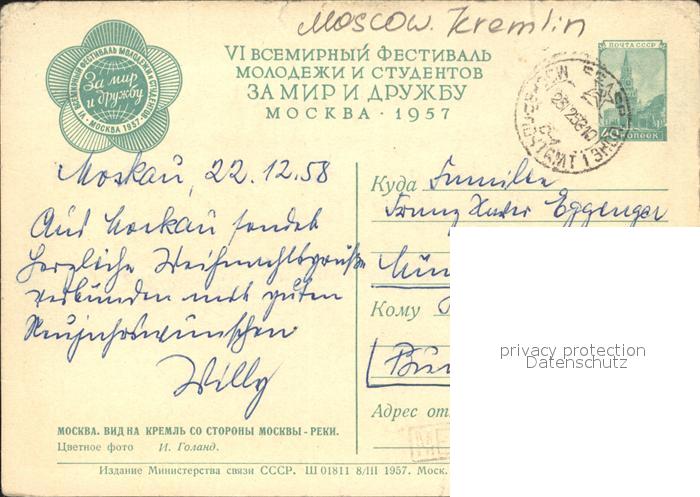 Moscow. Kremlin
VI ВСЕМИРНЫЙ ФЕСТИВАЛЬ
МОЛОДЕЖИ И СТУДЕНТОВ
ЗА МИР И ДРУЖБУ
МОСКВА · 1957
VI ВСЕМИРНЫЙ ФЕСТИВАЛЬ МОЛОДЕЖИ И СТУДЕНТОВ
За мир
и дружбу
МОСКВА 1957
ПОЧТА СССР
40 КОПЕЕК
Moskau, 22.12.58
Aus Moskau sendet
herzliche Weihnachtsgrüße
verbunden mit guten
Neujahrswünschen
Willy
Куда Familie
Franz Xaver Eggenger
Mün
Кому
Адрес от
privacy protection
Datenschutz
МОСКВА. ВИД НА КРЕМЛЬ СО СТОРОНЫ МОСКВЫ-РЕКИ.
Цветное фото И. Голанд.
Издание Министерства связи СССР. Ш 01811 8/III 1957. Моск.